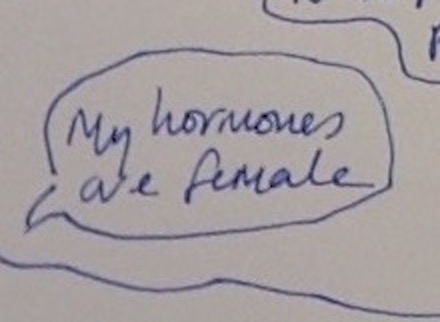 My hormones
are female